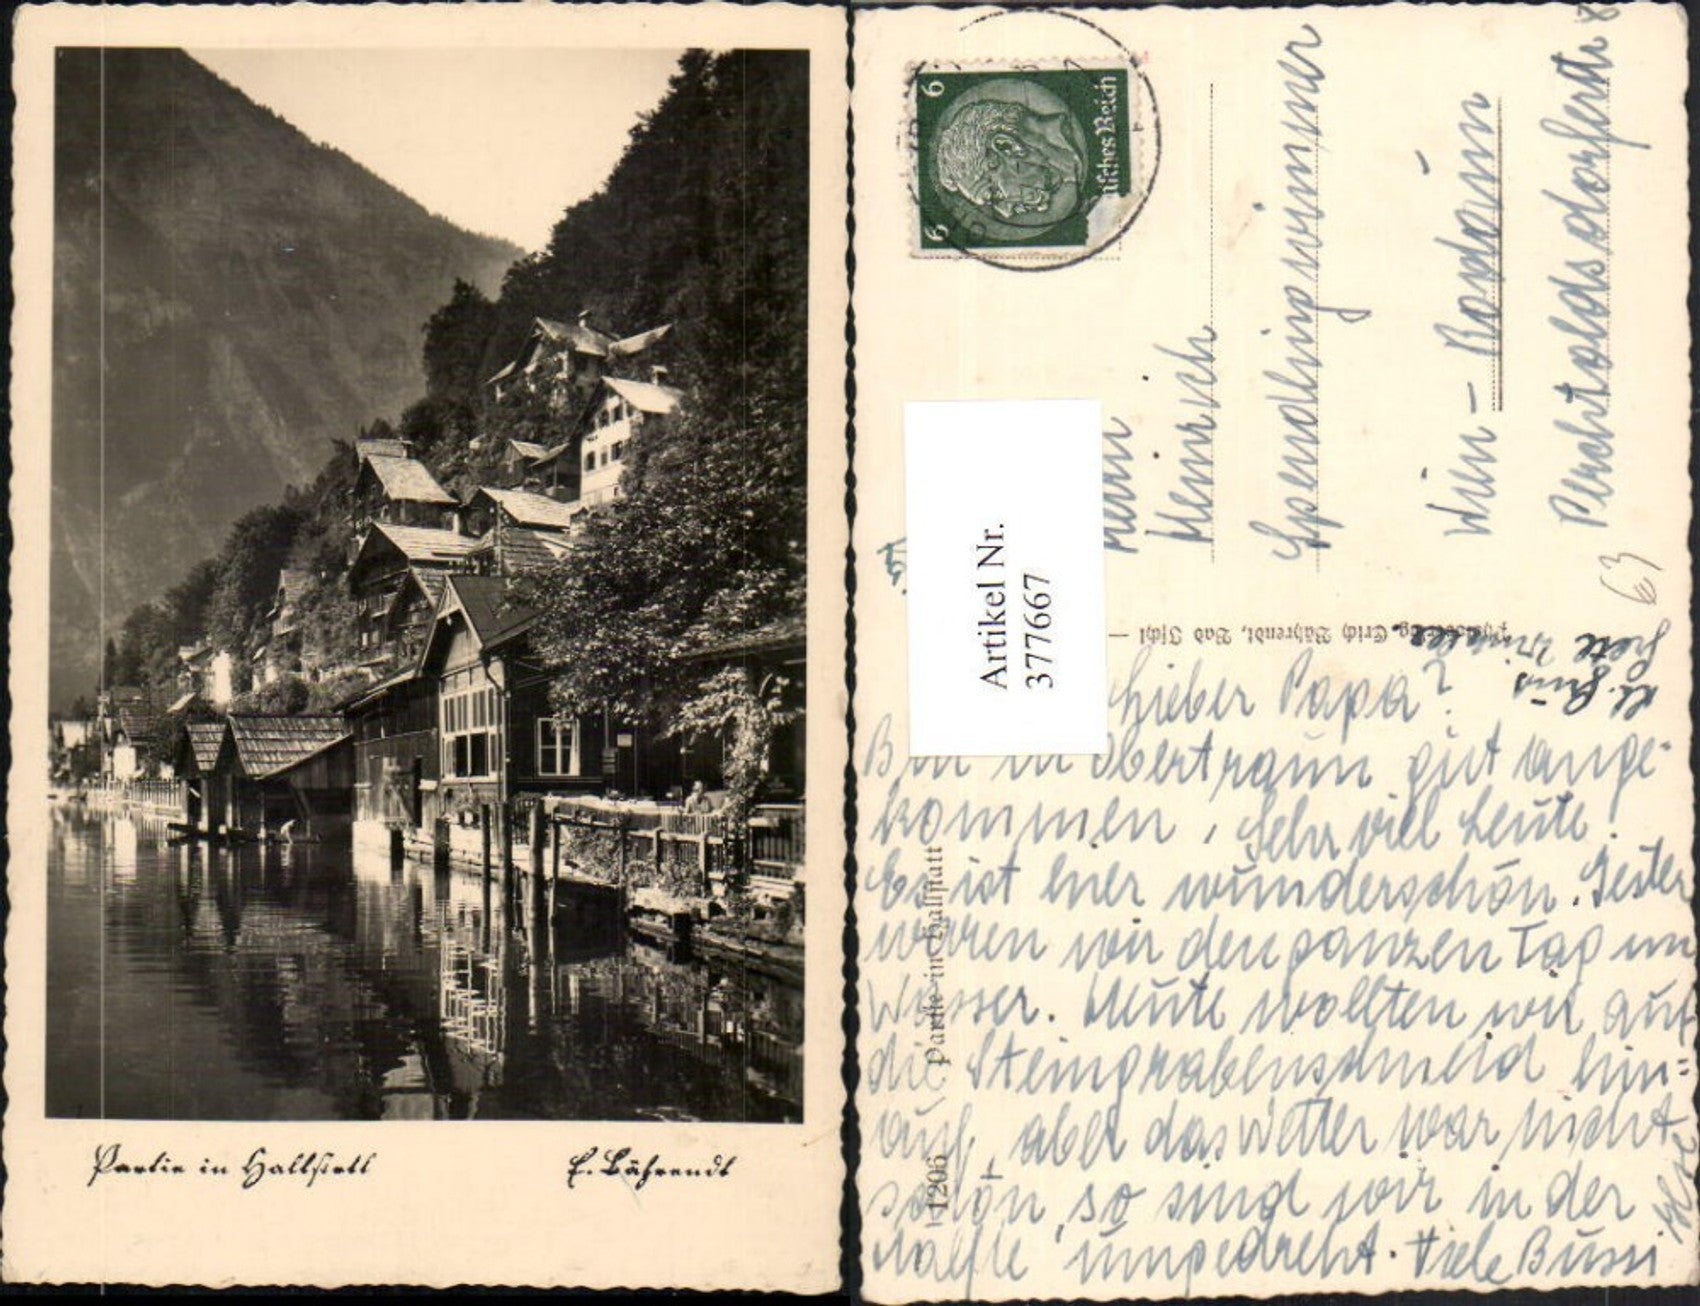 Partie in Hallstatt
E. Bährendt
6
6
Deutsches Reich
Artikel Nr.
377667
Herrn
Heinrich
Spendlingwimmer
Wien - Rodaun
Perchtoldsdorferstr 8
63
Erich Bährendt, Bad Ischl
1206 Partie in Hallstatt
Lieber Papa!
Bin in Obertraun gut ange-
kommen, Sehr viel Leute!
Es ist hier wunderschön. Gestern
waren wir den ganzen Tag im
Wasser. Heute wollten wir auf
die Steingrabenschneid hin-
auf, aber das Wetter war nicht
schön, so sind wir in der
Hälfte umgedreht. Viele Bussi